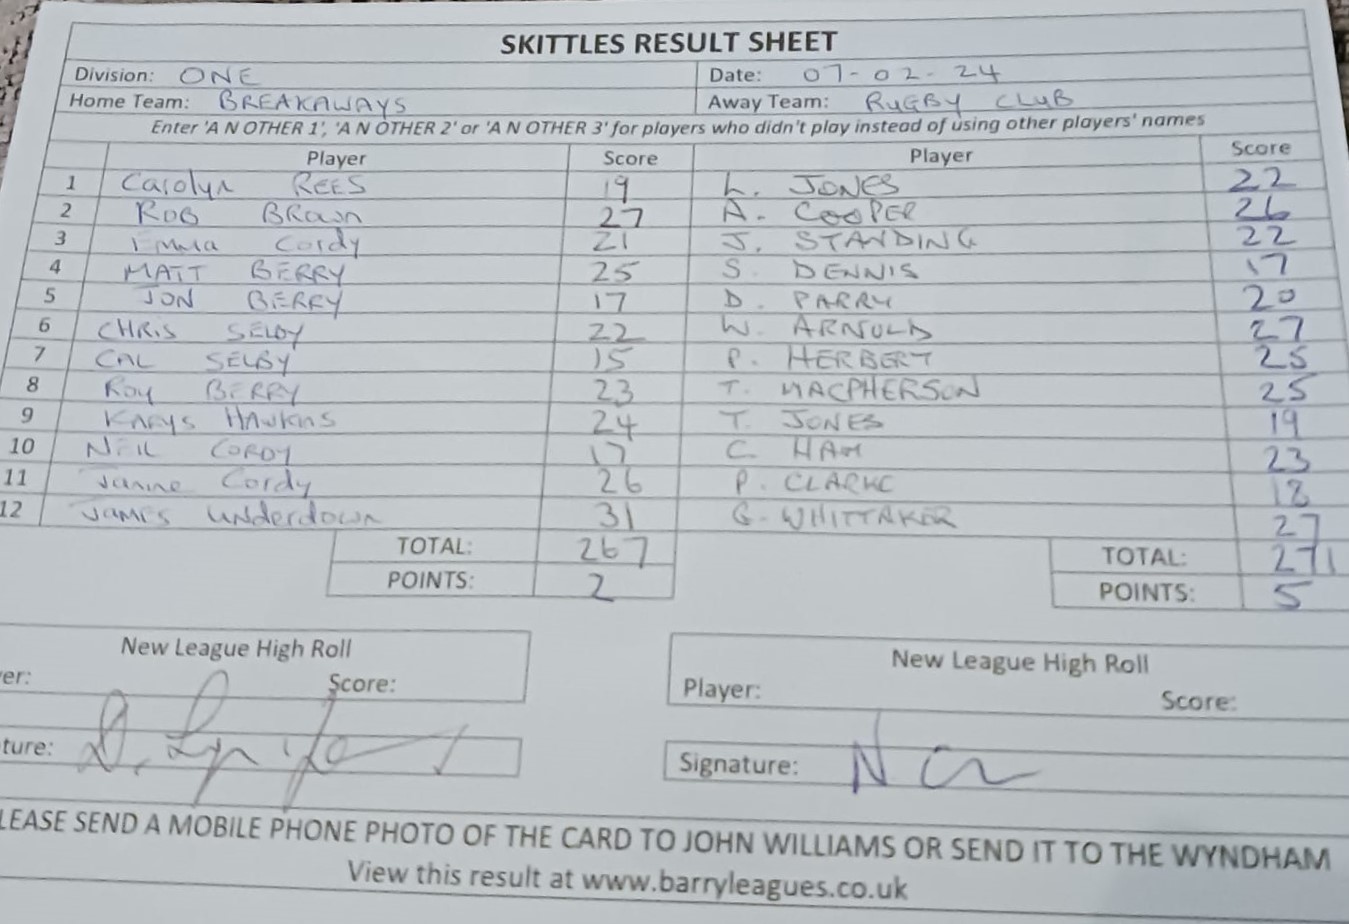 SKITTLES RESULT SHEET
Division: ONE Date: 07-02-24
Home Team: BREAKAWAYS Away Team: RUGBY CLUB
Enter 'A N OTHER 1', 'A N OTHER 2' or 'A N OTHER 3' for players who didn't play instead of using other players' names
Player Score Player Score
1 Carolyn REES 19 L. JONES 22
2 ROB BROWN 27 A. COOPER 26
3 Emma Cordy 21 J. STANDING 22
4 MATT BERRY 25 S. DENNIS 17
5 JON BERRY 17 D. PARRY 20
6 CHRIS SELBY 22 W. ARNOLD 27
7 CAL SELBY 15 P. HERBERT 25
8 ROY BERRY 23 T. MACPHERSON 25
9 KARYS HAWKINS 24 T. JONES 19
10 NEIL CORDY 17 C. HAM 23
11 Janine Cordy 26 P. CLARKE 18
12 JAMES Underdown 31 G. WHITTAKER 27
TOTAL: 267 TOTAL: 271
POINTS: 2 POINTS: 5
New League High Roll New League High Roll
er: Score: Player: Score:
ture: Signature:
LEASE SEND A MOBILE PHONE PHOTO OF THE CARD TO JOHN WILLIAMS OR SEND IT TO THE WYNDHAM
View this result at www.barryleagues.co.uk